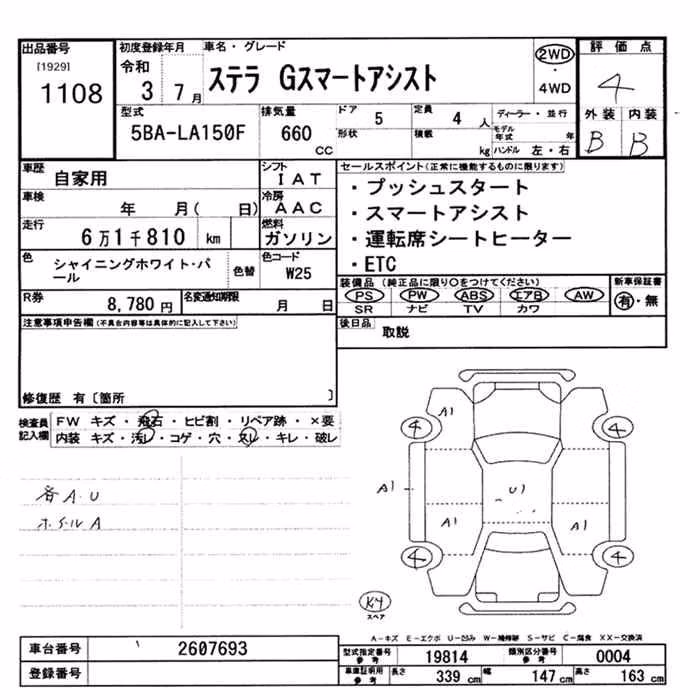 出品番号
[1929]
1108
初度登録年月
令和
3 7月
車名・グレード
ステラ Gスマートアシスト
2WD
・
4WD
評価点
4
外装 内装
B B
型式
5BA-LA150F
排気量
660 CC
ドア 5
形状
定員 4 人
積載 kg
ディーラー・並行
モデル年式 年
ハンドル 左・右
車歴
自家用
シフト
IAT
車検
年 月( 日)
冷房
AAC
走行
6万1千810 km
燃料
ガソリン
色
シャイニングホワイト・パ
ール
色替
色コード
W25
R券
8,780円
名変通知期限
月 日
セールスポイント(正常に機能するものに限ります)
・プッシュスタート
・スマートアシスト
・運転席シートヒーター
・ETC
装備品(純正品に限り○をつけてください)
PS PW ABS エアB AW
SR ナビ TV カワ
新車保証書
有・無
後日品
取説
注意事項申告欄(不具合内容等は具体的に記入して下さい)
修復歴 有〔箇所 〕
検査員
記入欄
FW キズ・飛石・ヒビ割・リペア跡・×要
内装 キズ・汚レ・コゲ・穴・スレ・キレ・破レ
各A・U
ホイールA
A1
4 4
A1
U1
A1 A1
4 4
スペア
A-キズ E-エクボ U-凹み W-補修跡 S-サビ C-腐食 XX-交換済
車台番号
2607693
登録番号
型式指定番号
参考
19814
類別区分番号
参考
0004
車庫証明用
参考
長さ 339 cm
幅 147 cm
高さ 163 cm